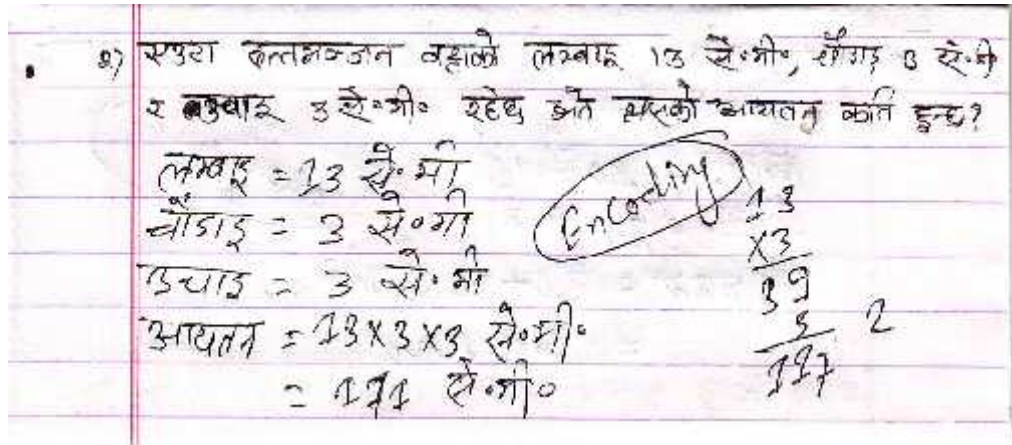 १) एउटा दन्तमञ्जन बट्टाको लम्बाइ 13 से॰मी॰, चौडाइ 3 से॰मी
र उचाइ 3 से॰मी॰ रहेछ भने यसको आयतन कति हुन्छ?
लम्बाइ = 13 से॰ मी
चौडाइ = 3 से॰मी
उचाइ = 3 से॰ मी
आयतन = 13x3x3 से॰मी॰
= 171 से॰मी॰
Encoding
13
x3
39
3 2
117